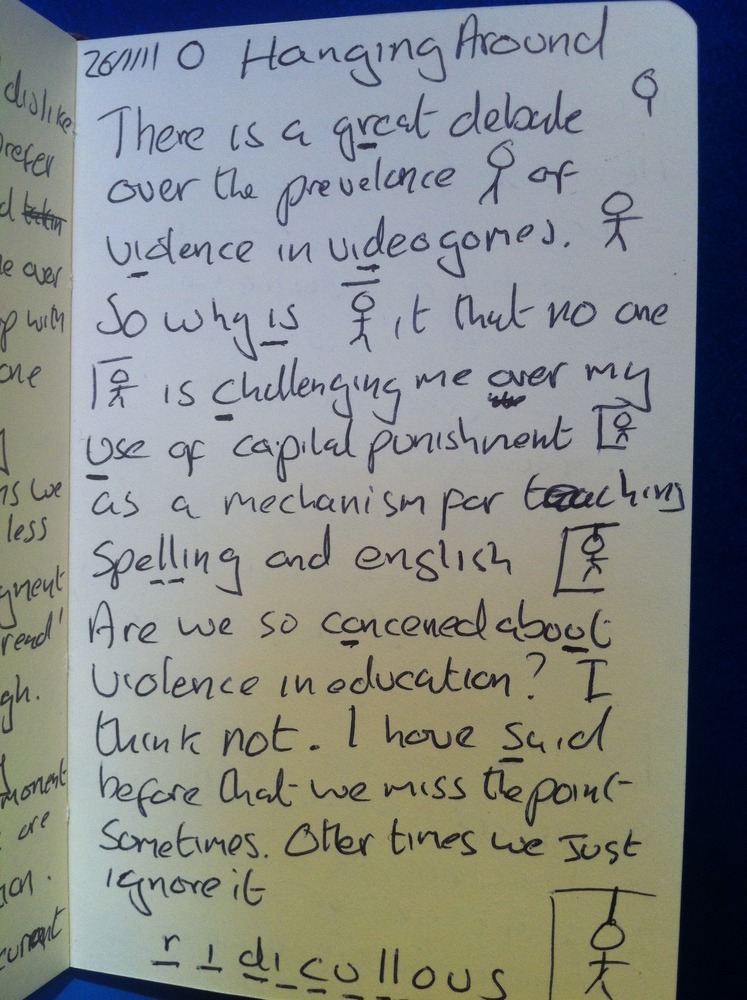 dislike
refer
over
with
one
is we
less
gment
read'
gh.
moment
are
26/11/11 O Hanging Around
There is a great debate
over the prevelance of
violence in videogames.
So why is it that no one
is challenging me over my
use of capital punishment
as a mechanism for teaching
spelling and english
Are we so concened about
violence in education? I
think not. I have said
before that we miss the point
sometimes. Other times we just
ignore it
r i d i c u l l o u s